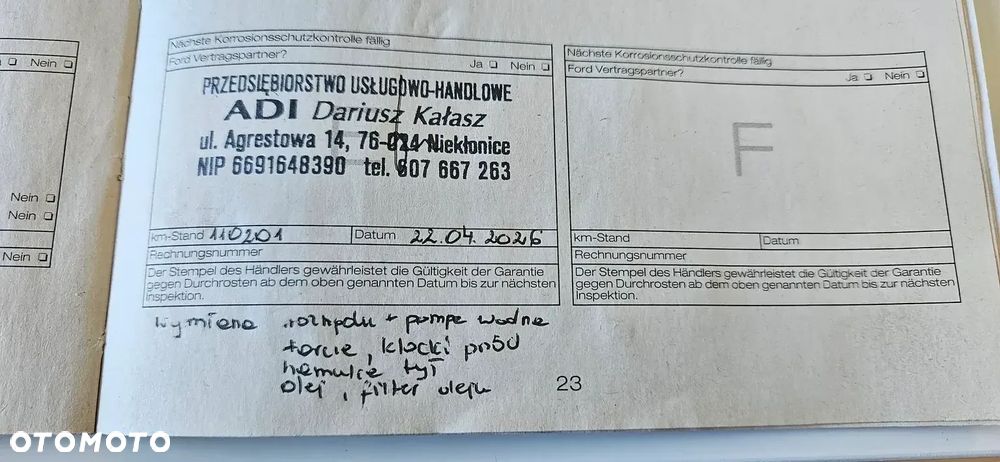 Nein
Nein
Nein
Nein
Nächste Korrosionsschutzkontrolle fällig
Ford Vertragspartner?
Ja Nein
PRZEDSIĘBIORSTWO USŁUGOWO-HANDLOWE
ADI Dariusz Kałasz
ul. Agrestowa 14, 76-024 Niekłonice
NIP 6691648390 tel. 607 667 263
km-Stand 110201 Datum 22.04.2026
Rechnungsnummer
Der Stempel des Händlers gewährleistet die Gültigkeit der Garantie
gegen Durchrosten ab dem oben genannten Datum bis zur nächsten
Inspektion.
Wymiana rozrządu + pompa wodna
tarcze, klocki przód
hamulce tył
olej, filter oleju
Nächste Korrosionsschutzkontrolle fällig
Ford Vertragspartner?
Ja Nein
F
km-Stand Datum
Rechnungsnummer
Der Stempel des Händlers gewährleistet die Gültigkeit der Garantie
gegen Durchrosten ab dem oben genannten Datum bis zur nächsten
Inspektion.
23
OTOMOTO